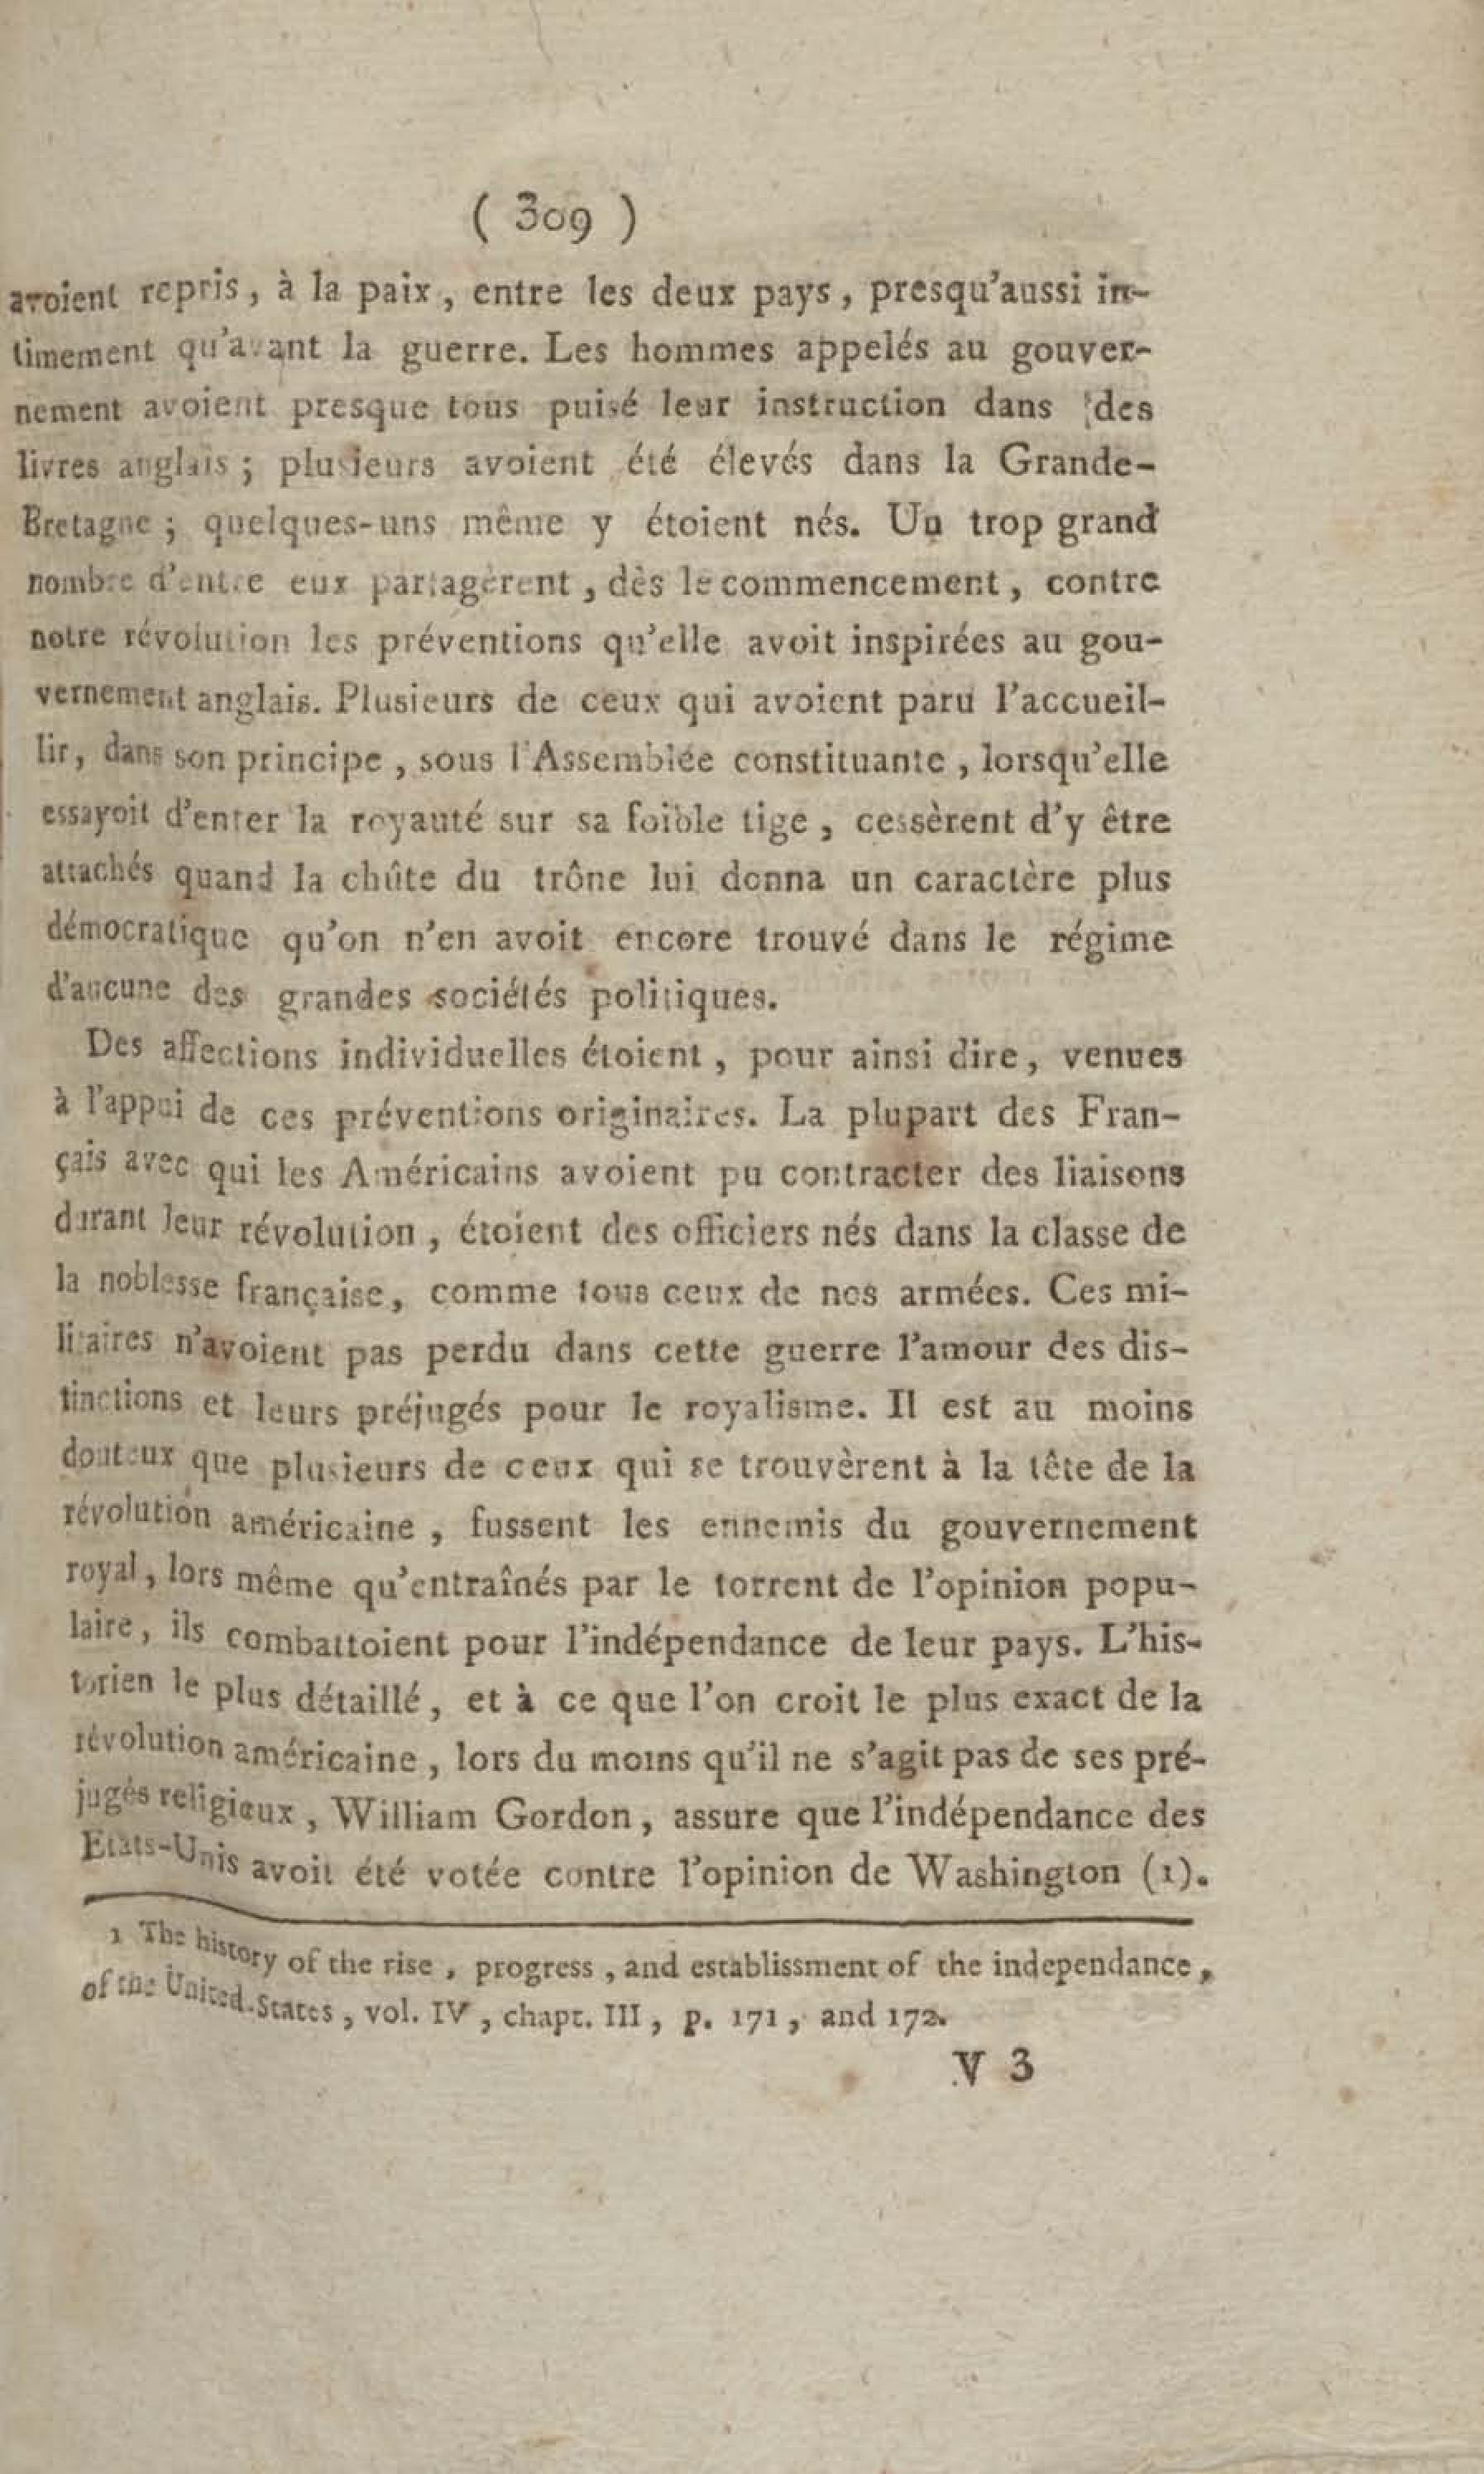 ( 309 )
avoient repris, à la paix, entre les deux pays, presqu'aussi in-
timement qu'avant la guerre. Les hommes appelés au gouver-
nement avoient presque tous puisé leur instruction dans des
livres anglais ; plusieurs avoient été élevés dans la Grande-
Bretagne ; quelques-uns même y étoient nés. Un trop grand
nombre d'entre eux partagèrent, dès le commencement, contre
notre révolution les préventions qu'elle avoit inspirées au gou-
vernement anglais. Plusieurs de ceux qui avoient paru l'accueil-
lir, dans son principe, sous l'Assemblée constituante, lorsqu'elle
essayoit d'enter la royauté sur sa foible tige, cessèrent d'y être
attachés quand la chûte du trône lui donna un caractère plus
démocratique qu'on n'en avoit encore trouvé dans le régime
d'aucune des grandes sociétés politiques.
Des affections individuelles étoient, pour ainsi dire, venues
à l'appui de ces préventions originaires. La plupart des Fran-
çais avec qui les Américains avoient pu contracter des liaisons
durant leur révolution, étoient des officiers nés dans la classe de
la noblesse française, comme tous ceux de nos armées. Ces mi-
litaires n'avoient pas perdu dans cette guerre l'amour des dis-
tinctions et leurs préjugés pour le royalisme. Il est au moins
douteux que plusieurs de ceux qui se trouvèrent à la tête de la
révolution américaine, fussent les ennemis du gouvernement
royal, lors même qu'entraînés par le torrent de l'opinion popu-
laire, ils combattoient pour l'indépendance de leur pays. L'his-
torien le plus détaillé, et à ce que l'on croit le plus exact de la
révolution américaine, lors du moins qu'il ne s'agit pas de ses pré-
jugés religieux, William Gordon, assure que l'indépendance des
Etats-Unis avoit été votée contre l'opinion de Washington (1).
1 The history of the rise, progress, and establissment of the independance,
of the United-States, vol. IV, chapt. III, p. 171, and 172.
V 3